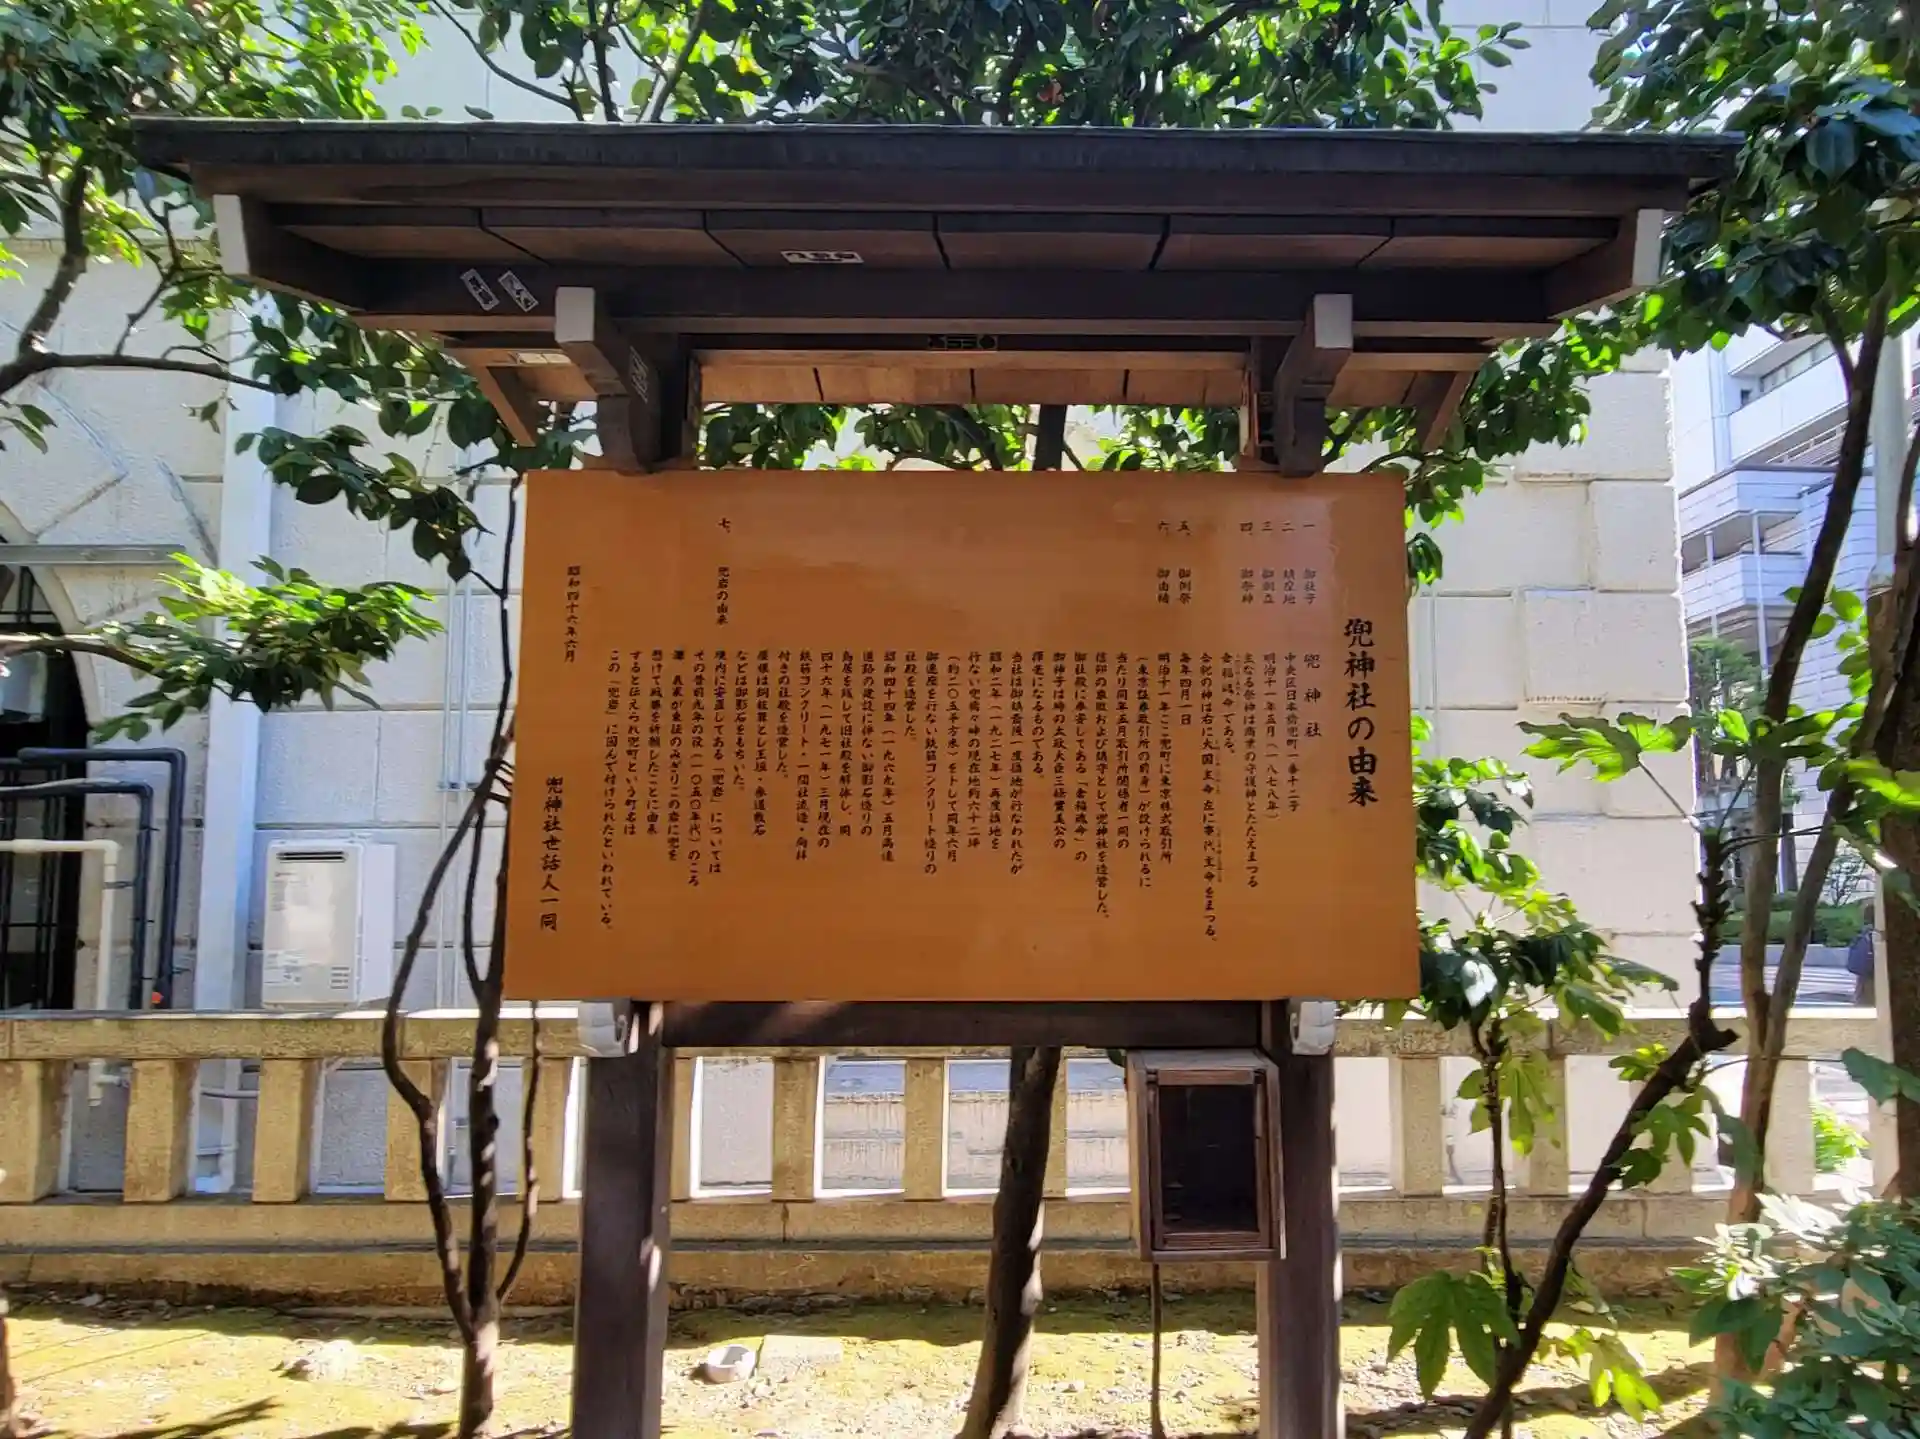 兜神社の由来
一 御社号 兜神社
二 鎮座地 中央区日本橋兜町一番十二号
三 御創立 明治十一年五月(一八七八年)
四、 御祭神 主なる祭神は商業の守護神とたたえまつる
倉稲魂命である。
合祀の神は右に大国主命 左に事代主命をまつる。
五、 御例祭 毎年四月一日
六、 御由緒 明治十一年ここ兜町に東京株式取引所
(東京証券取引所の前身)が設けられるに
当たり同年五月取引所関係者一同の
信仰の象徴および鎮守として兜神社を造営した。
御社殿に奉安してある「倉稲魂命」の
御神号は時の太政大臣三條實美公の
揮毫になるものである。
当社は御鎮斎後一度換地が行なわれたが
昭和二年(一九二七年)再度換地を
行ない兜橋々畔の現在地約六十二坪
(約二〇五平方米)をトして同年六月
御遷座を行ない鉄筋コンクリート造りの
社殿を造営した。
昭和四十四年(一九六九年)五月高速
道路の建設に伴ない御影石造りの
鳥居を残して旧社殿を解体し、同
四十六年(一九七一年)三月現在の
鉄筋コンクリート・一間社流造・向拝
付きの社殿を造営した。
屋根は銅板葺とし玉垣・参道敷石
などは御影石をもちいた。
七、 兜岩の由来 境内に安置してある「兜岩」については
その昔前九年の役(一〇五〇年代)のころ
源 義家が東征のみぎりこの岩に兜を
懸けて戦勝を祈願したことに由来
すると伝えられ兜町という町名は
この「兜岩」に因んで付けられたといわれている。
昭和四十六年六月
兜神社世話人一同